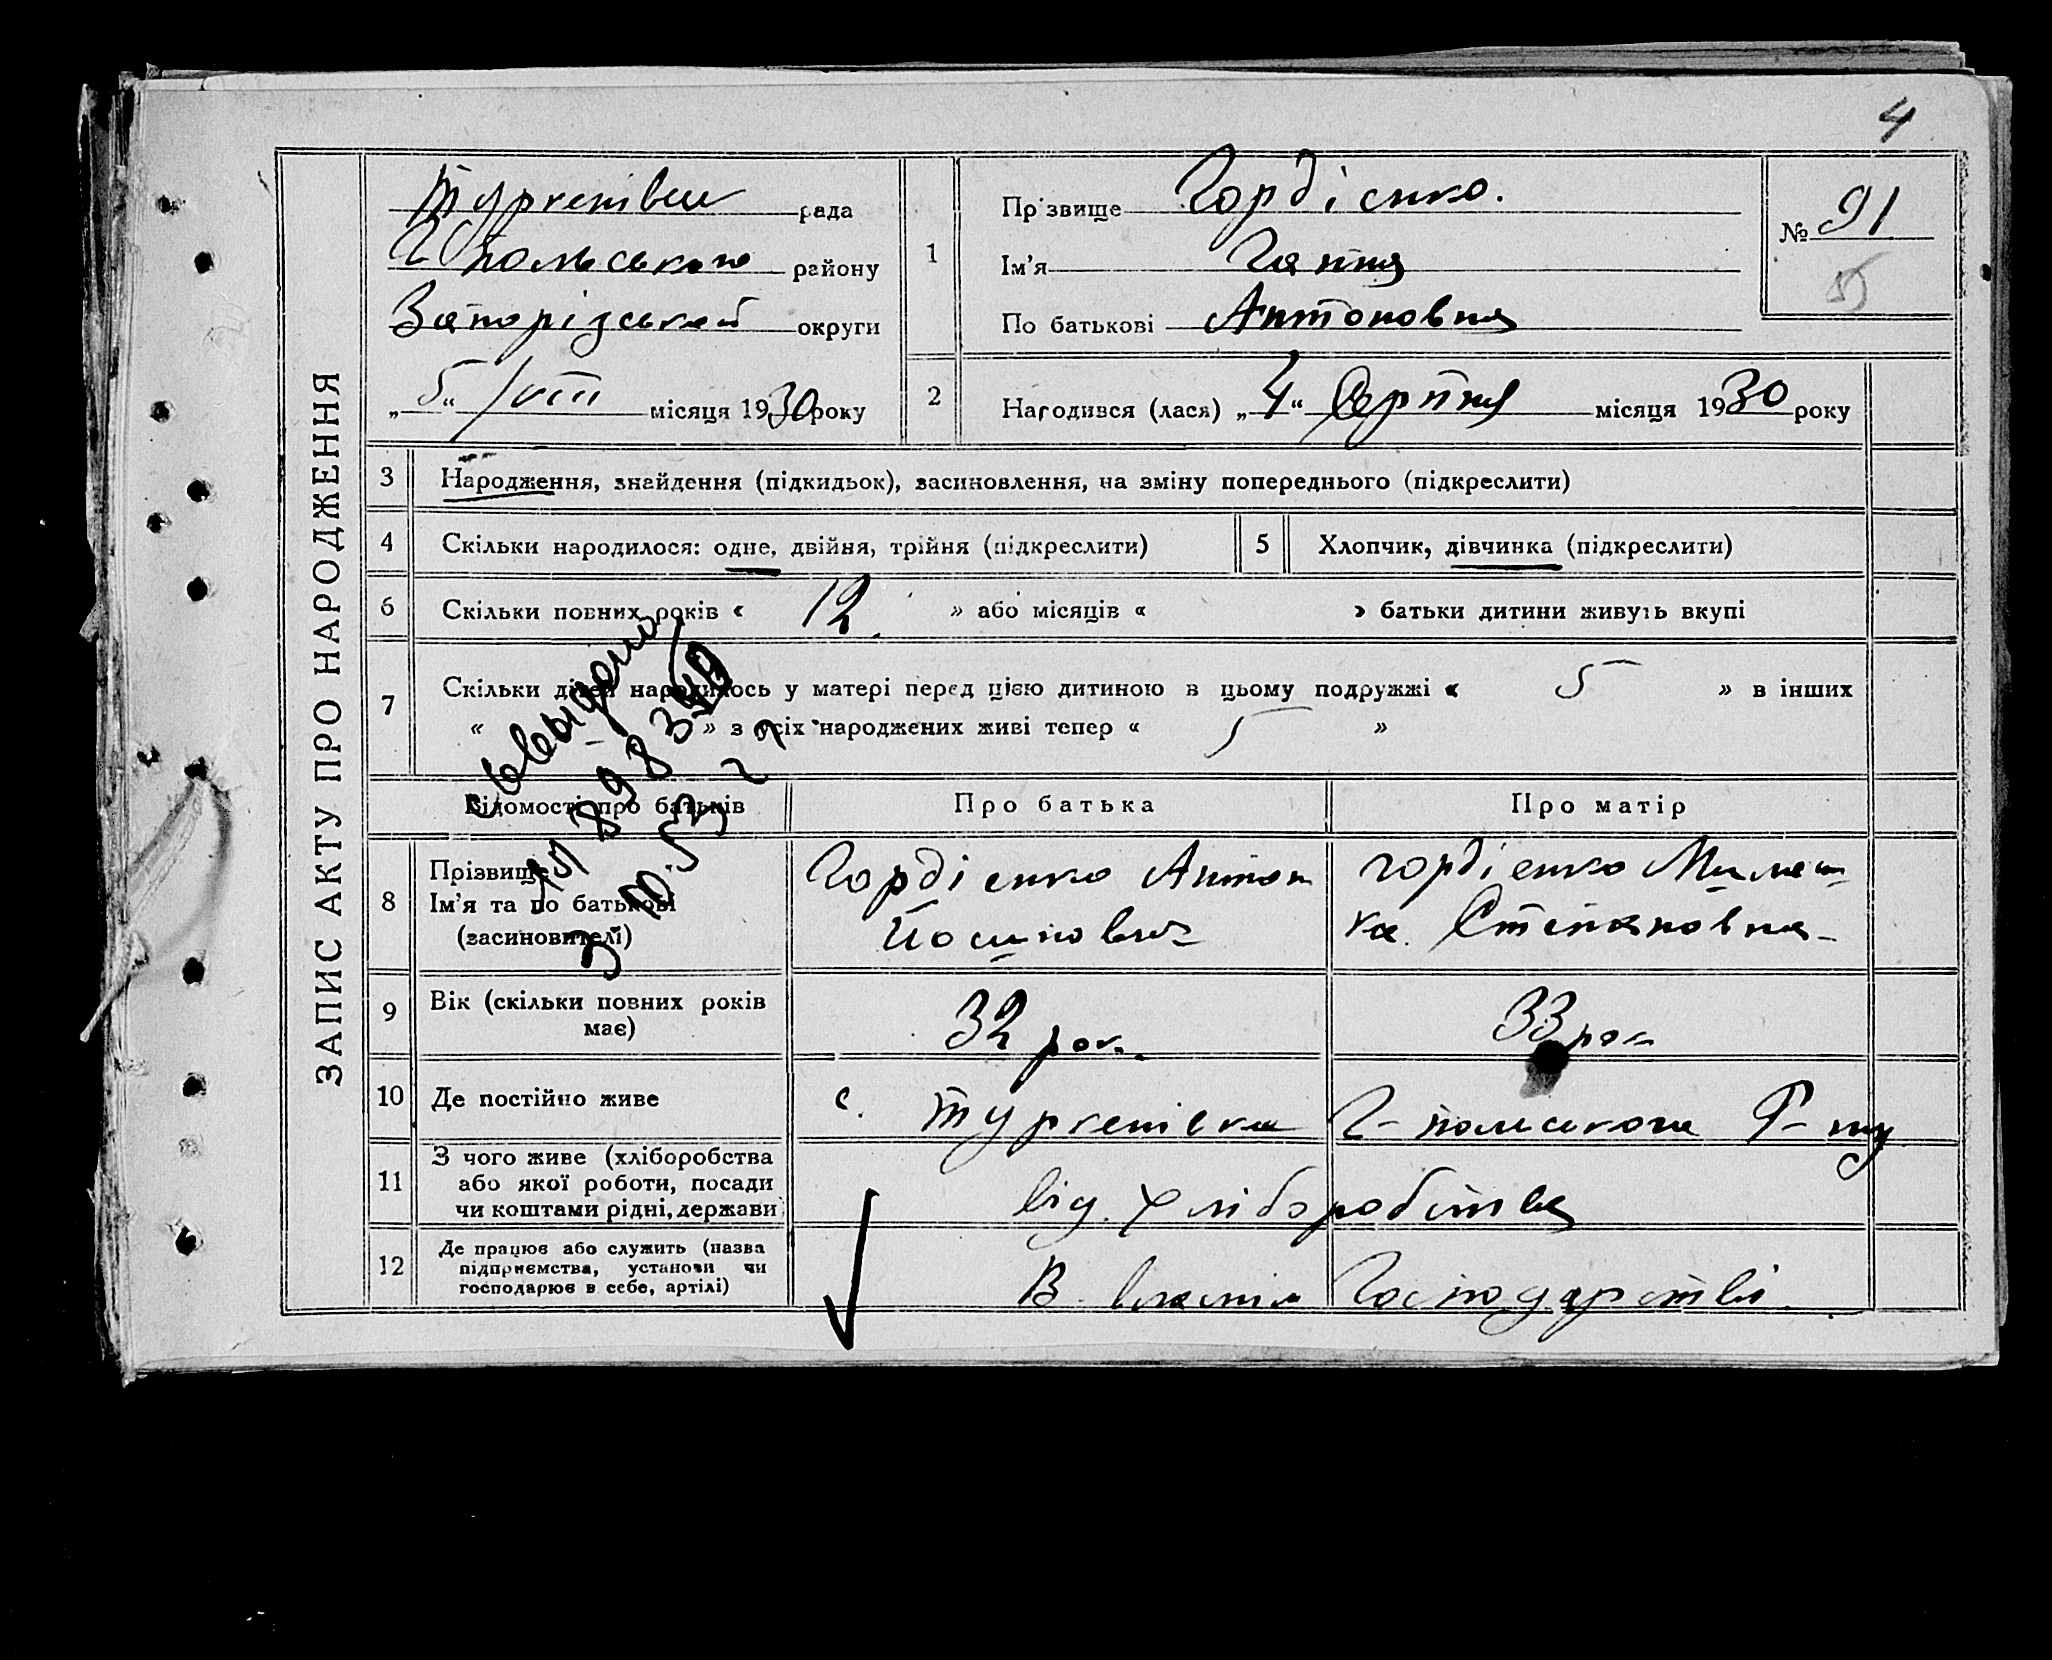 4
ЗАПИС АКТУ ПРО НАРОДЖЕННЯ
Туркенівська рада
Г Польського району
Запорізької округи
„5“ /VIII місяця 1930 року
1
Прізвище Гордієнко.
Ім'я Ганна
По батькові Антоновна
№ 91
2
Народився (лася) „4“ Серпня місяця 1930 року
3 Народження, знайдення (підкидьок), засиновлення, на зміну попереднього (підкреслити)
4 Скільки народилося: одне, двійня, трійня (підкреслити) 5 Хлопчик, дівчинка (підкреслити)
6 Скільки повних років « 12 » або місяців « » батьки дитини живуть вкупі
7 Скільки дітей народилось у матері перед цією дитиною в цьому подружжі « 5 » в інших
« » з усіх народжених живі тепер « 5 »
Відомості про батьків Про батька Про матір
8 Прізвище
Ім'я та по батькові
(засиновителі)
Гордієнко Антон
Йосипович
Гордієнко
Степановна
9 Вік (скільки повних років має) 32 рок. 33 рок
10 Де постійно живе с. Туркенівка Г-польського Р-ну
11 З чого живе (хліборобства
або якої роботи, посади
чи коштами рідні, держави
від. хліборобства
12 Де працює або служить (назва
підприємства, установи чи
господарює в себе, артілі)
В власнім Господарстві.